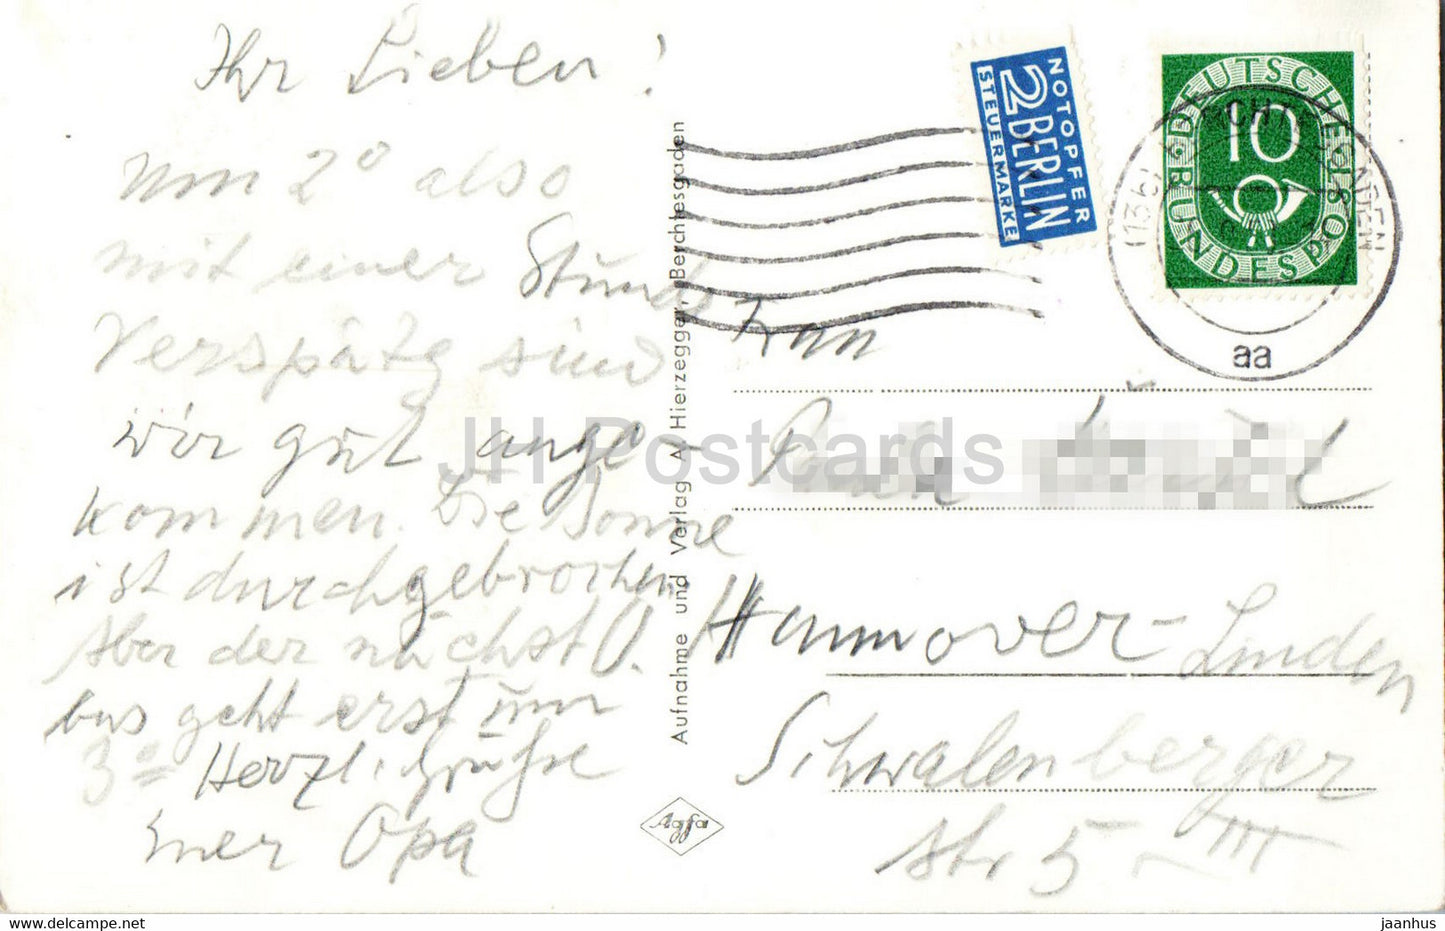 Ihr Lieben!
um 2° also
mit einer Stunde
Verspätg sind
wir gut ange-
kommen. Die Sonne
ist durchgebrochen.
Aber der nächst O.
bus geht erst um
3°° Herzl. Grüße
Euer Opa
Aufnahme und Verlag A. Hierzegger, Berchtesgaden
Agfa
NOTOPFER
2 BERLIN
STEUERMARKE
DEUTSCHE
10
BUNDESPOST
(13b)
aa
Frau
Hannover-Linden
Schwalenberger
Str 5 III
JH Postcards
www.delcampe.net
jaanhus